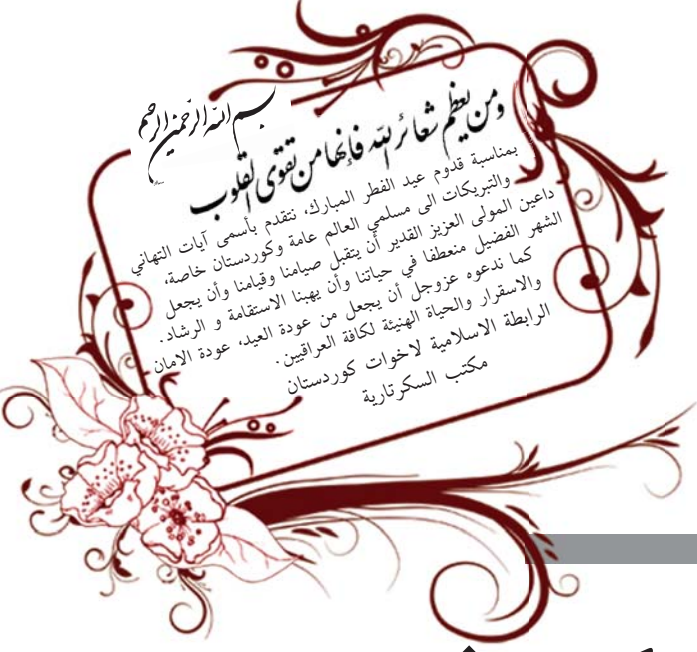 بسم الله الرحمن الرحيم
ومن يعظم شعائر الله فإنها من تقوى القلوب
بمناسبة قدوم عيد الفطر المبارك، نتقدم بأسمى آيات التهاني
والتبريكات الى مسلمي العالم عامة وكوردستان خاصة،
داعين المولى العزيز القدير أن يتقبل صيامنا وقيامنا وأن يجعل
الشهر الفضيل منعطفا في حياتنا وأن يهبنا الاستقامة و الرشاد.
كما ندعوه عزوجل أن يجعل من عودة العيد، عودة الامان
والاسقرار والحياة الهنيئة لكافة العراقيين.
الرابطة الاسلامية لاخوات كوردستان
مكتب السكرتارية